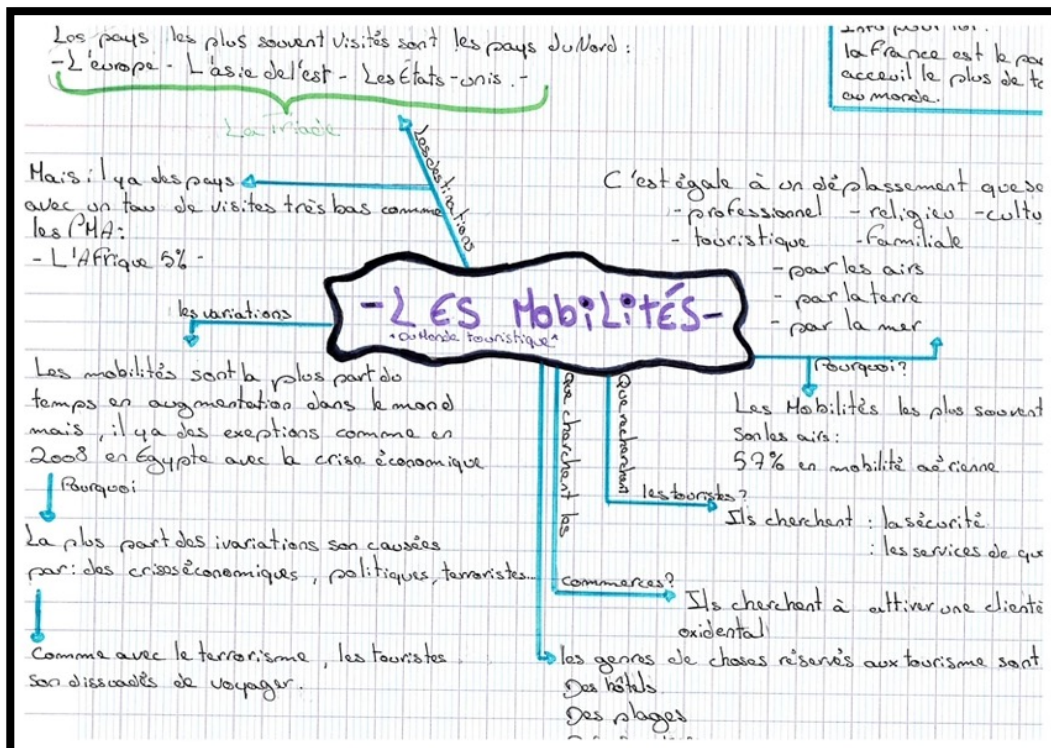 Les pays les plus souvent visités sont les pays du Nord :
-L'europe - L'asie de l'est - Les États-unis . -
La Triade
Info pour toi :
la France est le pa
acceuil le plus de to
au monde.
Les destinations
Mais il ya des pays
avec un tau de visites très bas comme
les PMA:
- L'Afrique 5% -
C'est égale à un déplassement que se
- professionnel - religieu - cultu
- touristique - familiale
- par les airs
- par la terre
- par la mer
-LES MobiLiTÉS-
"Du Monde touristique"
les variations
Les mobilités sont la plus part du
temps en augmentation dans le mond
mais, il ya des exeptions comme en
2008 en Égypte avec la crise économique
Pourquoi
La plus part des ivariations son causées
par: des crises économiques, politiques, terroristes...
Comme avec le terrorisme, les touristes
son dissuadés de voyager.
Pourquoi?
Les Mobilités les plus souvent
son les airs:
57% en mobilité aérienne
Que recherchent
les touristes?
Ils cherchent : la sécurité
: les services de qu
Que cherchent les
commerces?
Ils cherchent à attirer une clientè
oxidental
les genres de choses réservés aux tourisme sont
Des hôtels
Des plages